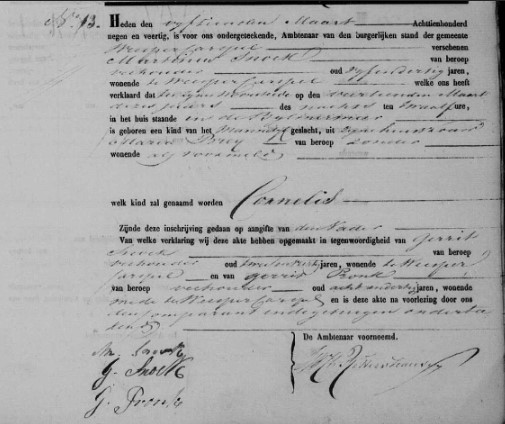 No. 13. Heden den vyftienden Maart Achttienhonderd
negen en veertig, is voor ons ondergeteekende, Ambtenaar van den burgerlijken stand der gemeente
Weespercarspel verschenen
Martinus Snoek van beroep
veehouder oud jaren,
wonende te Weespercarspel welke ons heeft
verklaard dat op den veertienden Maart
dezes jaars des nachts ten twaalf ure,
in het huis staande in de Bylmermeer
is geboren een kind van het Mannelyk geslacht, uit zyne huisvrouw
Maria van beroep zonder
wonende als voormeld
welk kind zal genaamd worden Cornelis
Zijnde deze inschrijving gedaan op aangifte van den Vader
Van welke verklaring wij deze akte hebben opgemaakt in tegenwoordigheid van Gerrit
Snoek van beroep
veehouder oud jaren, wonende te Weesper
carspel en van Gerrit Pronk
van beroep veehouder oud achtendertig jaren, wonende
mede te Weespercarspel en is deze akte na voorlezing door ons
den comparant en de getuigen onderte
kend
De Ambtenaar voornoemd.
G. Snoek
G. Pronk